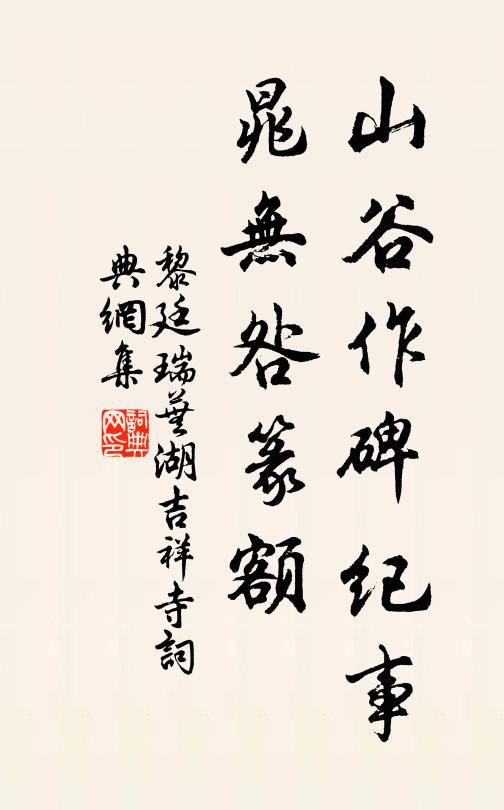 山谷作碑纪事
晁無咎篆額
黎廷瑞蕪湖吉祥寺詞
典網集
詞典网印